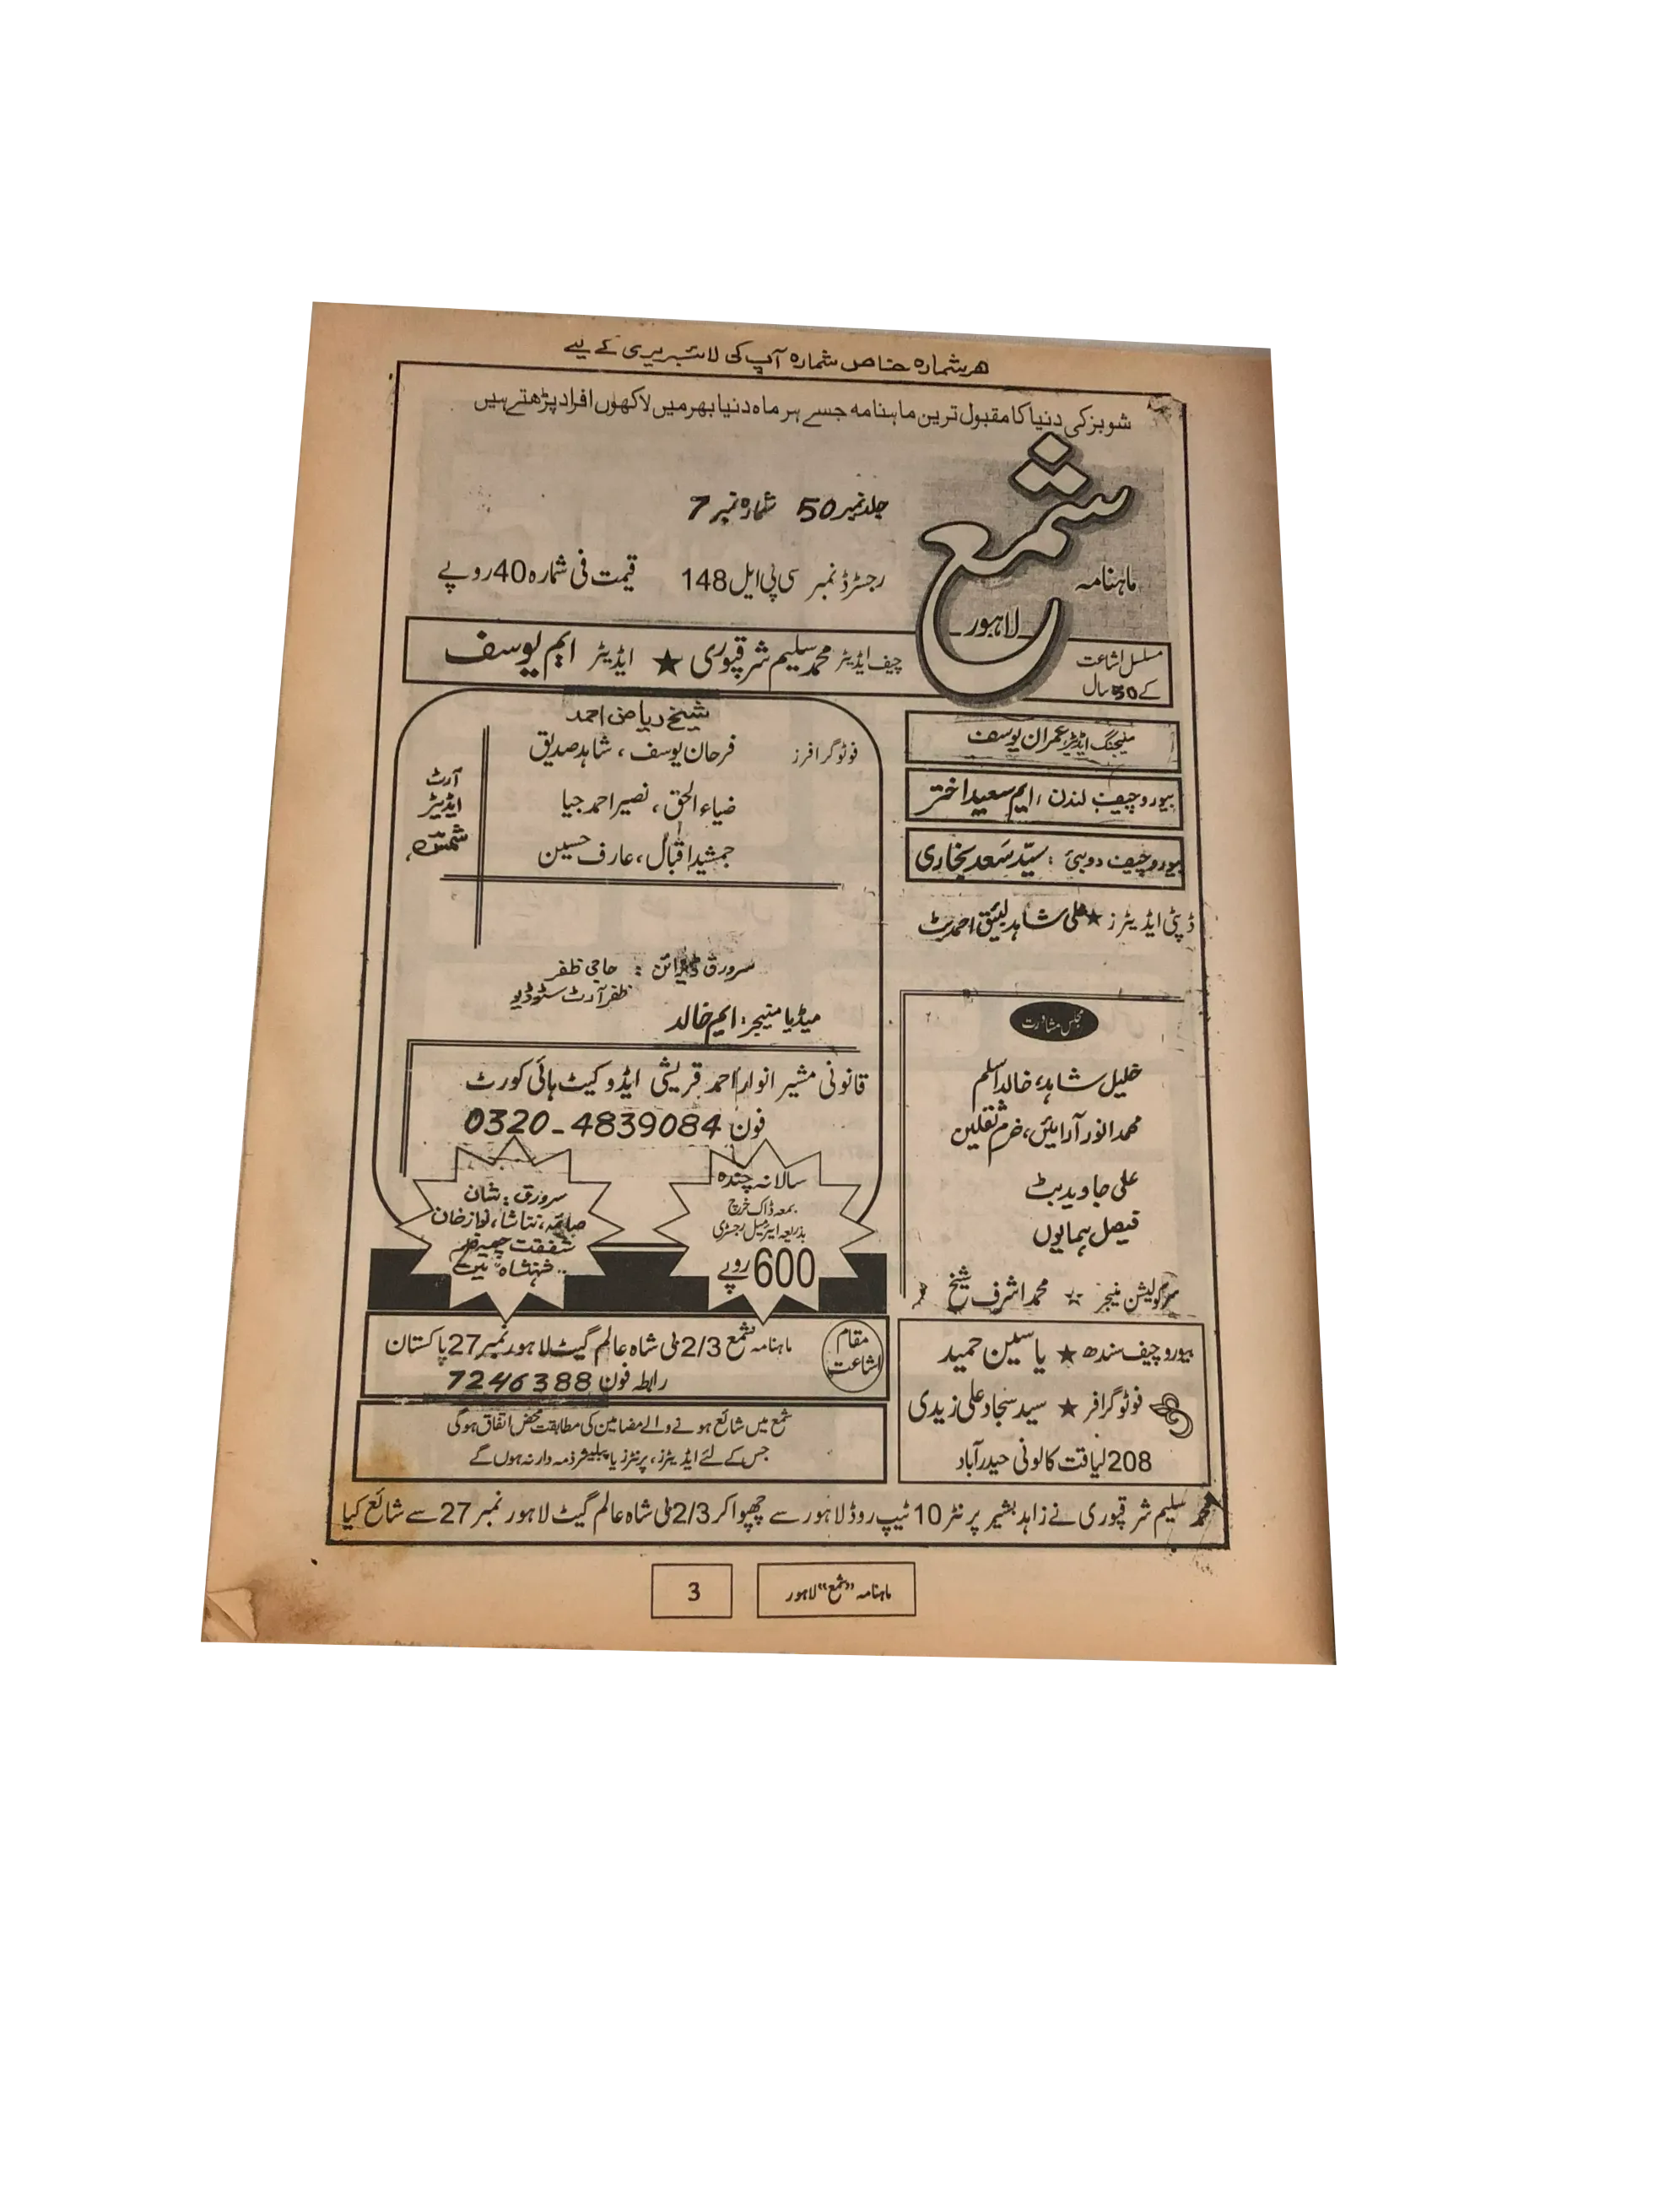 ھر شمارہ خاص شمارہ آپ کی لائبریری کے لیے
شوبز کی دنیا کا مقبول ترین ماہنامہ جسے ہر ماہ دنیا بھر میں لاکھوں افراد پڑھتے ہیں
ماہنامہ
شمع
لاہور
جلد نمبر 50 شمارہ نمبر 7
رجسٹرڈ نمبر سی پی ایل 148 قیمت فی شمارہ 40 روپے
مسلسل اشاعت
کے 50 سال
چیف ایڈیٹر محمد سلیم شرقپوری ★ ایڈیٹر ایم یوسف
منیجنگ ایڈیٹر، عمران یوسف
بیورو چیف لندن، ایم سعید اختر
بیورو چیف دوبئی: سیّد سَعد بخاری
ڈپٹی ایڈیٹرز ★ علی شاہد لئیق احمد بٹ
مجلس مشاورت
خلیل شاہد، خالد اسلم
محمد انور آرائیں، خرم ثقلین
علی جاوید بٹ
فیصل ہمایوں
سرکولیشن منیجر ☆ محمد اشرف شیخ
بیورو چیف سندھ ★ یاسین حمید
فوٹو گرافر ★ سید سجاد علی زیدی
208 لیاقت کالونی حیدرآباد
شیخ ریاض احمد
فوٹو گرافرز فرحان یوسف، شاہد صدیق
ضیاء الحق، نصیر احمد جیا
جمشید اقبال، عارف حسین
آرٹ
ایڈیٹر
شمسؔ
سرورق ڈیزائن: حاجی ظفر
ظفر آرٹ سٹوڈیو
میڈیا منیجر: ایم خالد
قانونی مشیر انوار احمد قریشی ایڈووکیٹ ہائی کورٹ
فون 0320-4839084
سالانہ چندہ
بمعہ ڈاک خرچ
بذریعہ ایئرمیل رجسٹری
600 روپے
سرورق: شان
صائمہ، نتاشا، نواز خان
شفقت چیمہ
"شہنشاہ" میں
مقام اشاعت
ماہنامہ شمع 2/3 ملی شاہ عالم گیٹ لاہور نمبر 27 پاکستان
رابطہ فون 7246388
شمع میں شائع ہونے والے مضامین کی مطابقت محض اتفاق ہوگی
جس کے لئے ایڈیٹرز، پرنٹرز یا پبلیشر ذمہ دار نہ ہوں گے
محمد سلیم شرقپوری نے زاہد بشیر پرنٹر 10 ٹیپ روڈ لاہور سے چھپوا کر 2/3 ملی شاہ عالم گیٹ لاہور نمبر 27 سے شائع کیا
ماہنامہ "شمع" لاہور
3